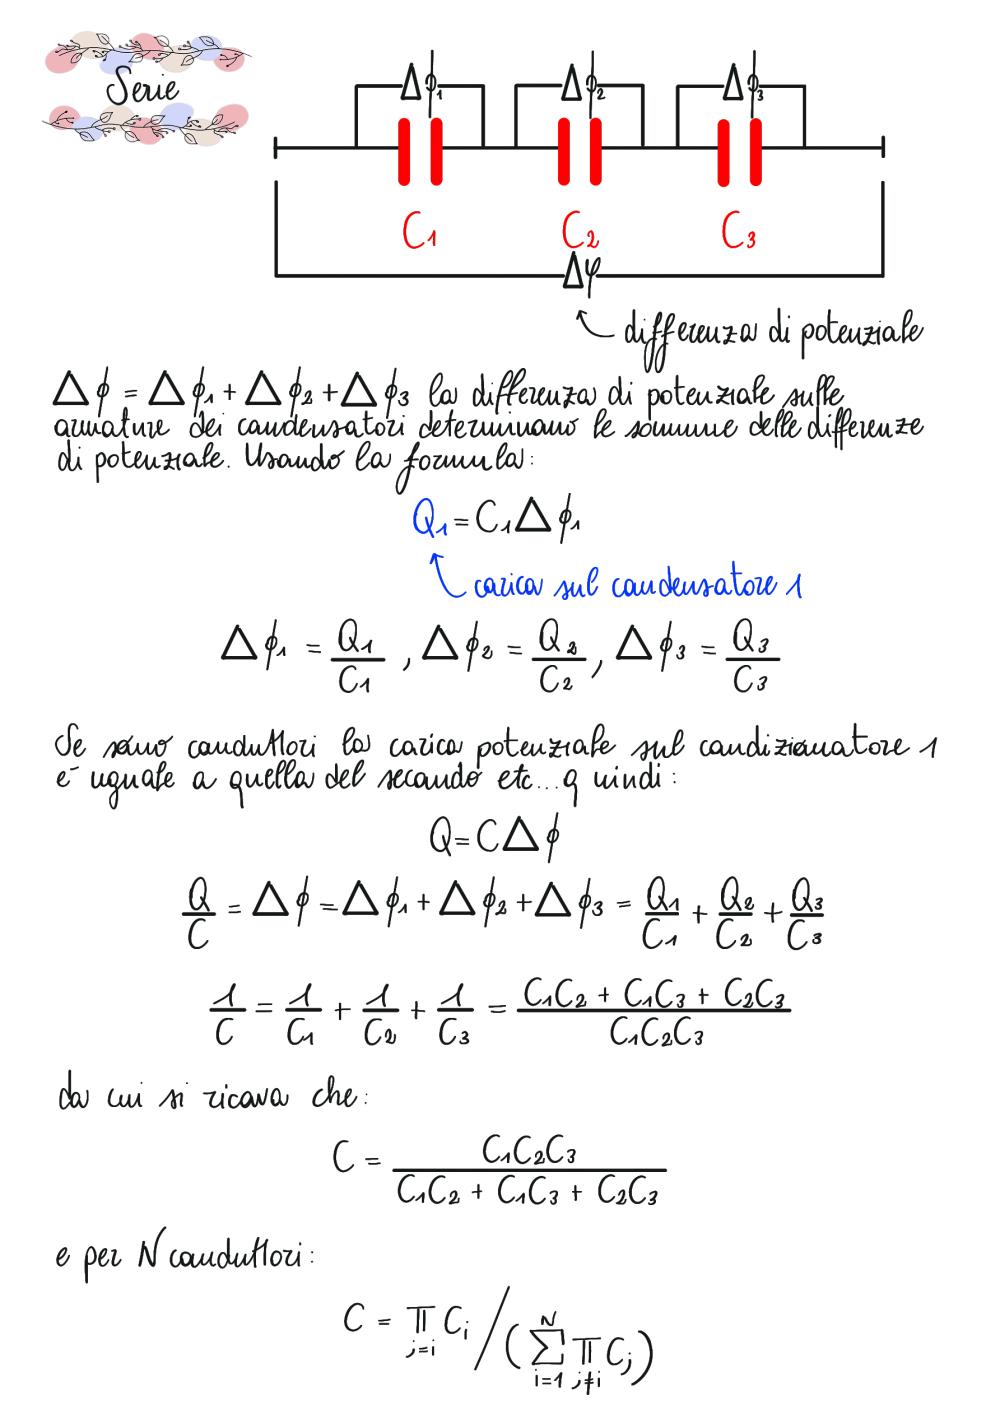 Serie
Δϕ₁ Δϕ₂ Δϕ₃
C₁ C₂ C₃
Δφ
differenza di potenziale
Δϕ = Δϕ₁ + Δϕ₂ + Δϕ₃ la differenza di potenziale sulle
armature dei condensatori determinano le somme delle differenze
di potenziale. Usando la formula:
Q₁ = C₁Δϕ₁
carica sul condensatore 1
Δϕ₁ = Q₁/C₁ , Δϕ₂ = Q₂/C₂ , Δϕ₃ = Q₃/C₃
Se sono conduttori la carica potenziale sul condizionatore 1
e' uguale a quella del secondo etc... quindi:
Q = CΔϕ
Q/C = Δϕ = Δϕ₁ + Δϕ₂ + Δϕ₃ = Q₁/C₁ + Q₂/C₂ + Q₃/C₃
1/C = 1/C₁ + 1/C₂ + 1/C₃ = C₁C₂ + C₁C₃ + C₂C₃ / C₁C₂C₃
da cui si ricava che:
C = C₁C₂C₃ / C₁C₂ + C₁C₃ + C₂C₃
e per N conduttori:
C = π j=i Cᵢ / (∑ i=1 N π j≠i Cⱼ)